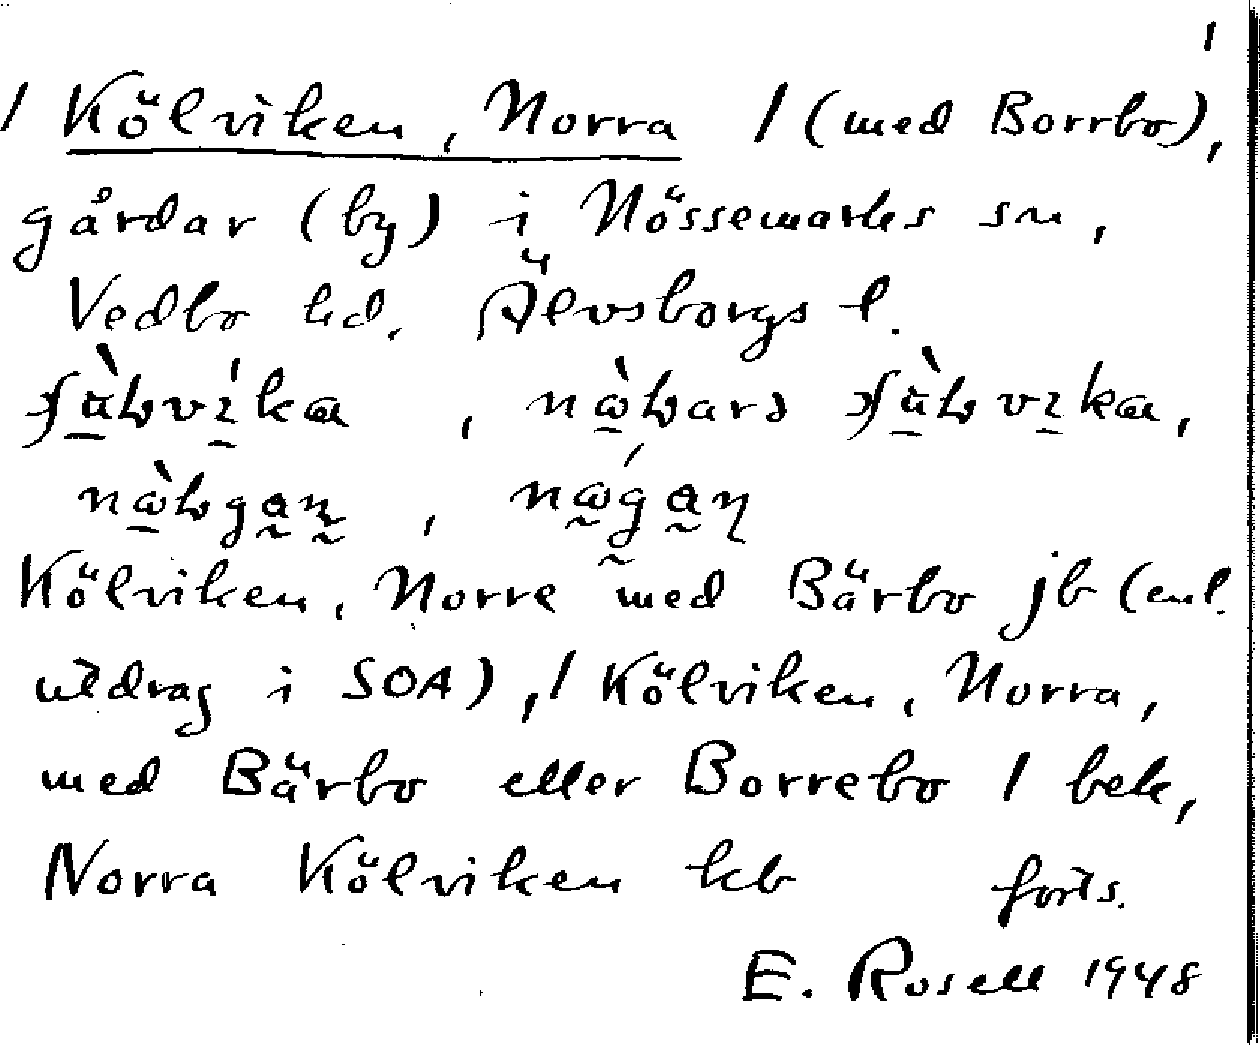 1
/ Kölviken, Norra / (med Borrbo),
gårdar (by) i Nössemarks sn,
Vedbo hd. Älvsborgs l.
Kölviken, Norre med Bärbo jb (enl.
utdrag i SOA), / Kölviken, Norra,
med Bärbo eller Borrebo / bek,
Norra Kölviken kb forts.
E. Rosell 1948